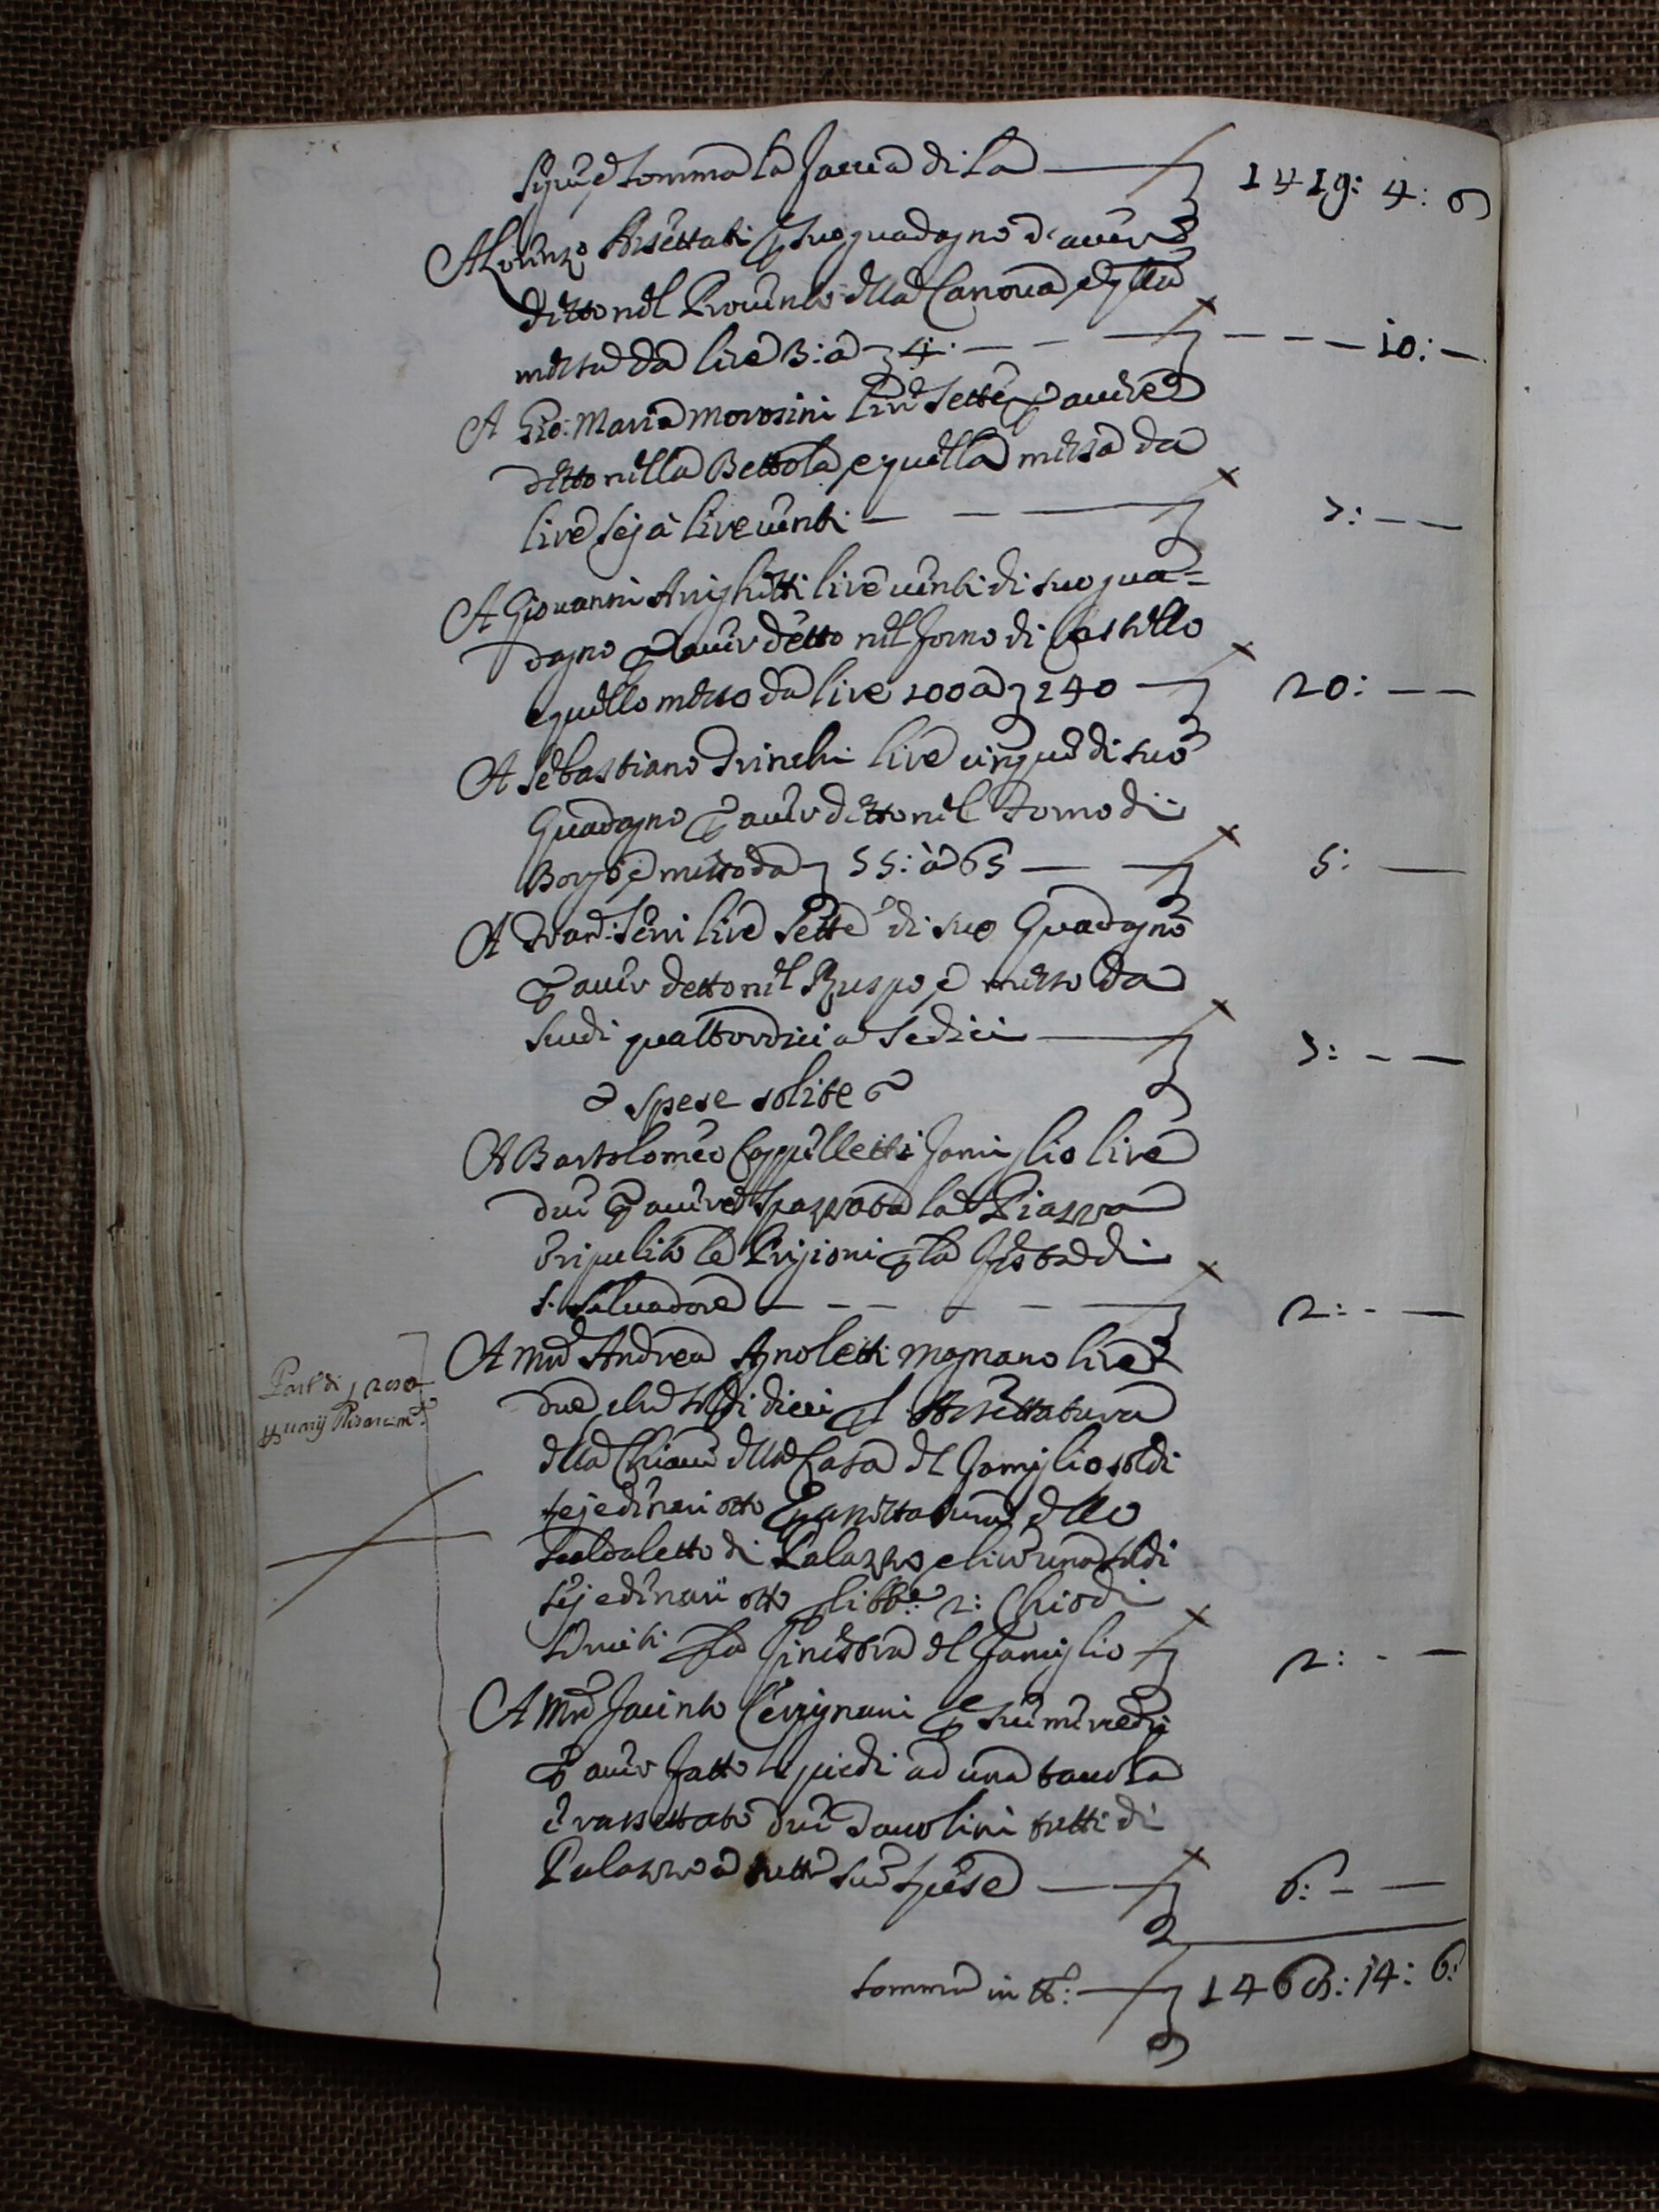 Segue e somma la faccia di la 1419: 4: 6
A Lorenzo Assettati p suo guadagno d'avere
detto nel Provento della Canova e q.lla
messa da lire 3: a 4: 10: —
A Gio: Maria Morosini lire sette p avere
detto nella Bettola, e quella messa da
lire sej à lire venti 7: — —
A Giovanni Arrighetti lire venti di suo gua=
dagno p aver detto nel forno di Castello
e quello messo da lire 200 a 240 20: — —
A Sebastiano Trinchi lire cinque di suo
Guadagno p aver detto nel forno di
Borgo, e messo da 55: à 65 5: —
A Fran: Seri lire sette di suo Guadagno
p aver detto nel Ruspo, e messo da
scudi quattordici a sedici 7: — —
spese solite
A Bartolomeo Cappelletti famiglio lire
due p avere spazzata la Piazza
e ripulito le Prigioni p la festa di
S. Salvadore 2: — —
A Mro Andrea Agnoletti magnano lire
due cioè soldi dieci p l'Assettatura
della Chiave della Casa del famiglio soldi
sej e denari otto p rassettatura dello
scaldaletto di Palazzo, e lire una soldi
sej e denari otto p libbre 2: Chiodi
serviti p la finestra del famiglio 2: — —
A Mro Jacinto Cerrignani p sue mercedi
p aver fatto li piedi ad una tavola
e rassettato due Tavolini tutti di
Palazzo a tutte sue spese 6: — —
somma in tt: 1468: 14: 6: